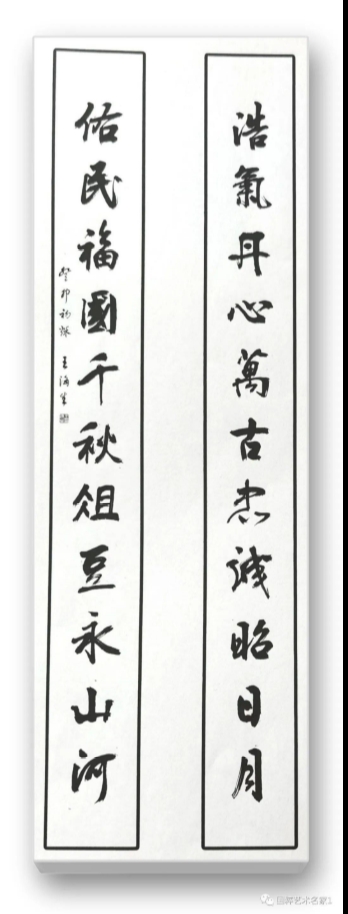 浩氣丹心萬古忠誠昭日月
佑民福國千秋俎豆永山河
癸卯初秋 王海生
国粹艺术名家1